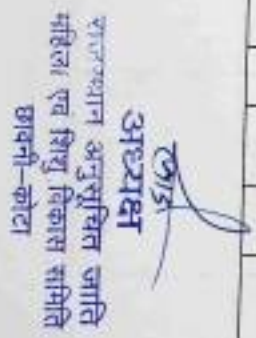 अध्यक्ष
राजस्थान अनुसूचित जाति
महिला एवं शिशु विकास समिति
छावनी-कोटा